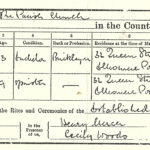 The Parish Church
in the Count
Age
Condition.
Rank or Profession.
Residence at the time of Ma
3 Bachelor Bricklayer 32 Queen Str
Ellesmere Por
9 Spinster 32 Queen Str
Ellesmere Por
the Rites and Ceremonies of the Established
In the Presence of us,
Henry Mercer
Cecily Woods